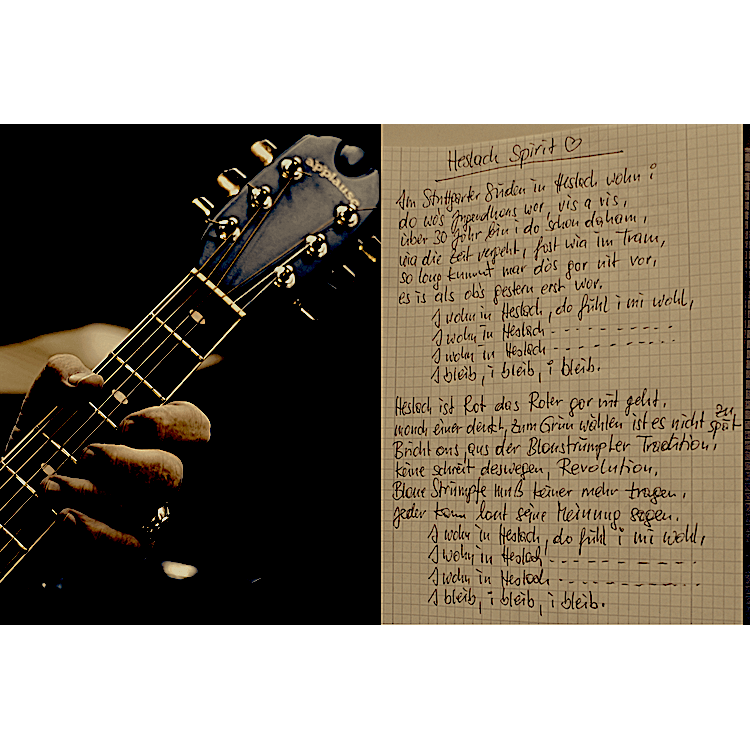 applause
Heslach Spirit ♡
Im Stuttgarter Süden in Heslach wohn i
do wo's Jugendhaus wor, vis a vis,
über 30 Johr bin i do schon daham,
wia die Zeit vergeht, fost wia im Tram,
so long kummt mar dos gor nit vor,
es is als ob's gestern erst wor.
I wohn in Heslach, do fühl i mi wohl,
I wohn in Heslach - - - - - - - - - -
I wohn in Heslach - - - - - - - - - -
I bleib, i bleib, i bleib.
Heslach ist Rot das Roter gor nit geht,
monch einer denkt, zum Grün wählen ist es nicht zu spät
Bricht ons aus der Blaustrümpfler Tradition,
keine schreit deswegen, Revolution,
Blaue Strümpfe muß keiner mehr tragen,
jeder kann laut seine Meinung sagen.
I wohn in Heslach, do fühl i mi wohl,
I wohn in Heslach - - - - - - - - - -
I wohn in Heslach - - - - - - - - - -
I bleib, i bleib, i bleib.